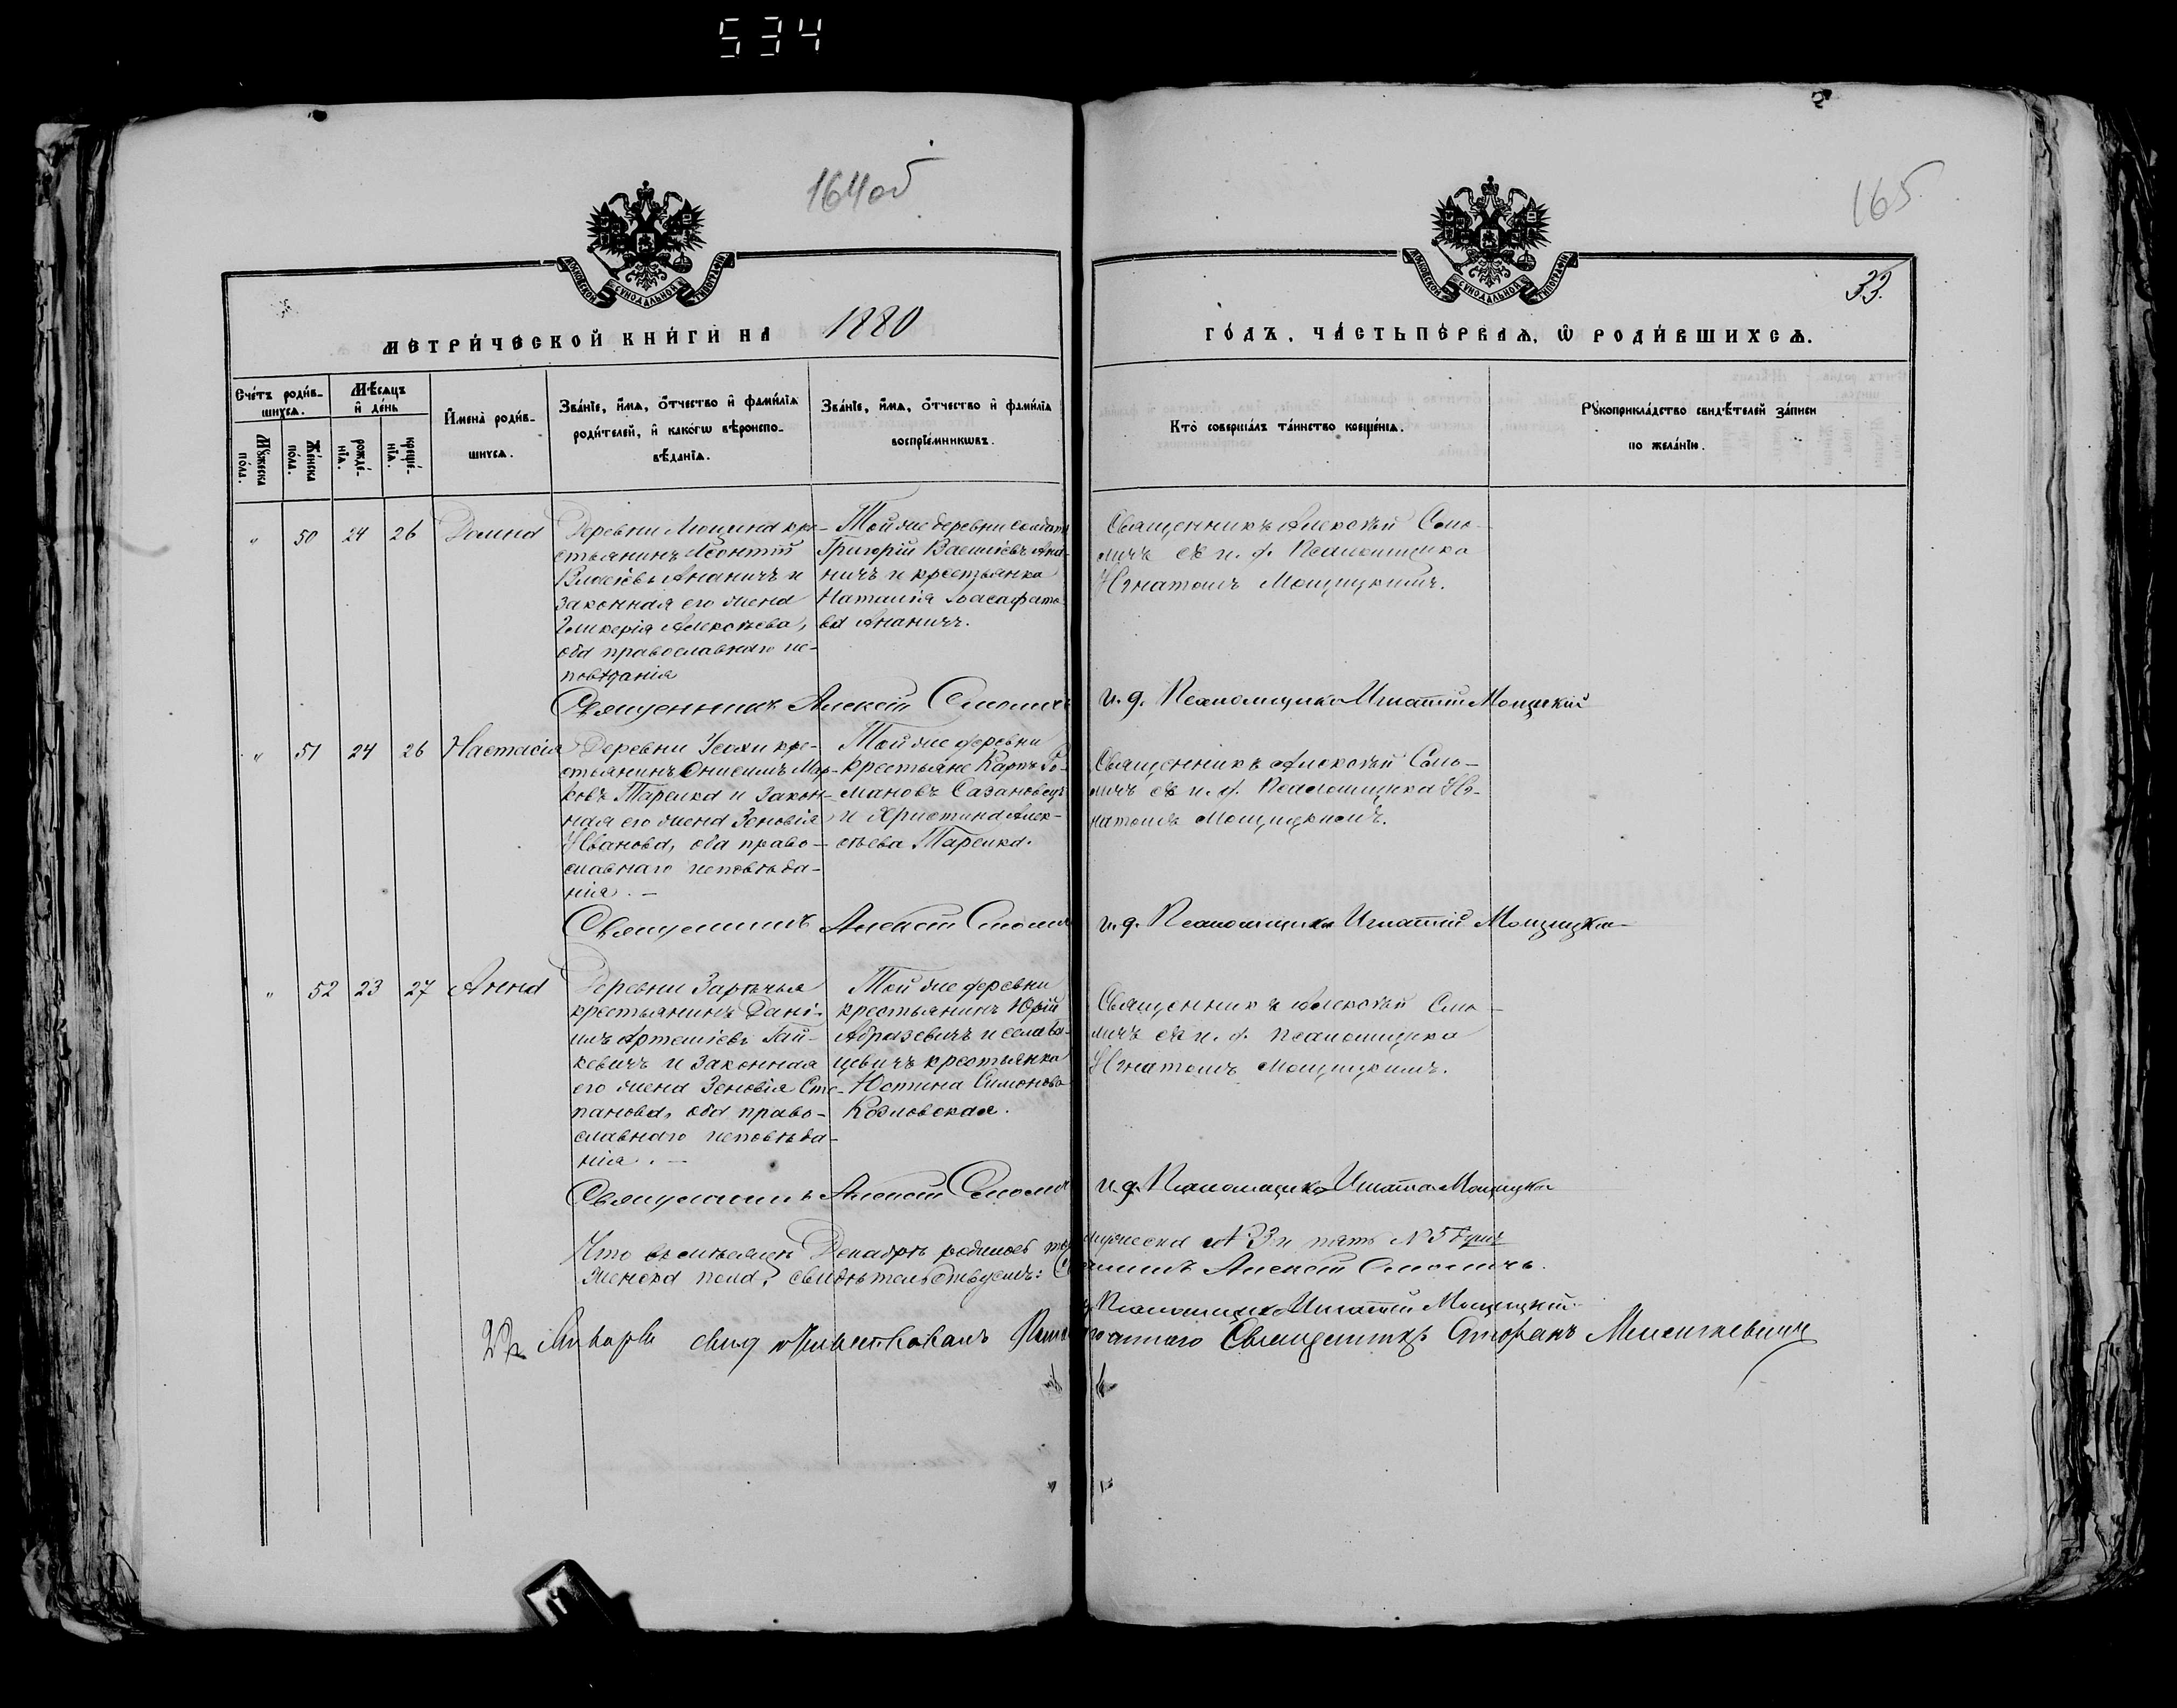 534
164об
165
33.
МОСКОВСКОЙ СѴНОДАЛЬНОЙ ТИПОГРАФІИ
МОСКОВСКОЙ СѴНОДАЛЬНОЙ ТИПОГРАФІИ
МЕТРИ́ЧЕСКОЙ КНИ́ГИ НА 1880
ГО́ДЪ, ЧА́СТЬ ПЕ́РВАЯ, Ѡ РОДИ́ВШИХСЯ.
Сче́тъ роди́в-
шихся.
Мѣ́сяцъ
и҆ де́нь
Мꙋ́жеска
по́ла.
Же́нска
по́ла.
рожде́-
нїя.
креще́-
нїя.
И҆мена̀ роди́в-
шихся.
Зва́нїе, и҆́мя, ѻ҆́тчество и҆ фами́лїя
роди́телей, и҆ како́гѡ вѣроиспо-
вѣ́данїя.
Зва́нїе, и҆́мя, ѻ҆́тчество и҆ фами́лїя
воспрїе́мникѡвъ.
Кто̀ соверша́лъ та́инство креще́нїя.
Рꙋкоприкла́дство свидѣ́телей за́писи
по жела́нїю.
" 50 24 26 Домна
Деревни Мощина кре-
стьянинъ Леонтій
Власіевъ Ананичъ и
законная его жена
Гликерія Алексѣева,
оба православнаго ис-
повѣданія
Той же деревни солдатъ
Григорій Васильевъ Ана-
ничъ и крестьянка
Наталія Іоасафато-
ва Ананичъ.
Священникъ Алексѣй Смо-
личъ съ и. д. Псаломщика
Игнатомъ Мощицкимъ.
Священникъ Алексѣй Смоличъ
и. д. Псаломщика Игнатій Мощицкій
" 51 24 26 Настасія
Деревни Усохи кре-
стьянинъ Онисимъ Мар-
ковъ Тарелка и закон-
ная его жена Зеновія
Иванова, оба право-
славнаго исповѣда-
нія. —
Той же деревни
крестьяне Карпъ Ро-
мановъ Сазановецъ
и Христина Алек-
сѣева Тарелка.
Священникъ Алексѣй Смо-
личъ съ и. д. Псаломщика Иг-
натомъ Мощицкимъ.
Священникъ Алексѣй Смоличъ
и. д. Псаломщика Игнатій Мощицкій
" 52 23 27 Анна
Деревни Зарѣчья
крестьянинъ Дані-
илъ Артеміевъ Гай-
кевичъ и законная
его жена Зеновія Сте-
панова, оба право-
славнаго исповѣда-
нія. —
Той же деревни
крестьянинъ Юрій
Абразевичъ и села Ба-
цевичъ крестьянка
Юстина Симонова
Козловская.
Священникъ Алексѣй Смо-
личъ съ и. д. Псаломщика
Игнатомъ Мощицкимъ.
Священникъ Алексѣй Смоличъ
и. д. Псаломщика Игнатій Мощицкій
Что въ мѣсяцѣ Декабрѣ родилось мужеска № 3 и пять № 5 душъ
женска пола, свидѣтельствуемъ: Священникъ Алексѣй Смоличъ.
Псаломщикъ Игнатій Мощицкій.
Января свидѣтельствовалъ Священникъ Стефанъ